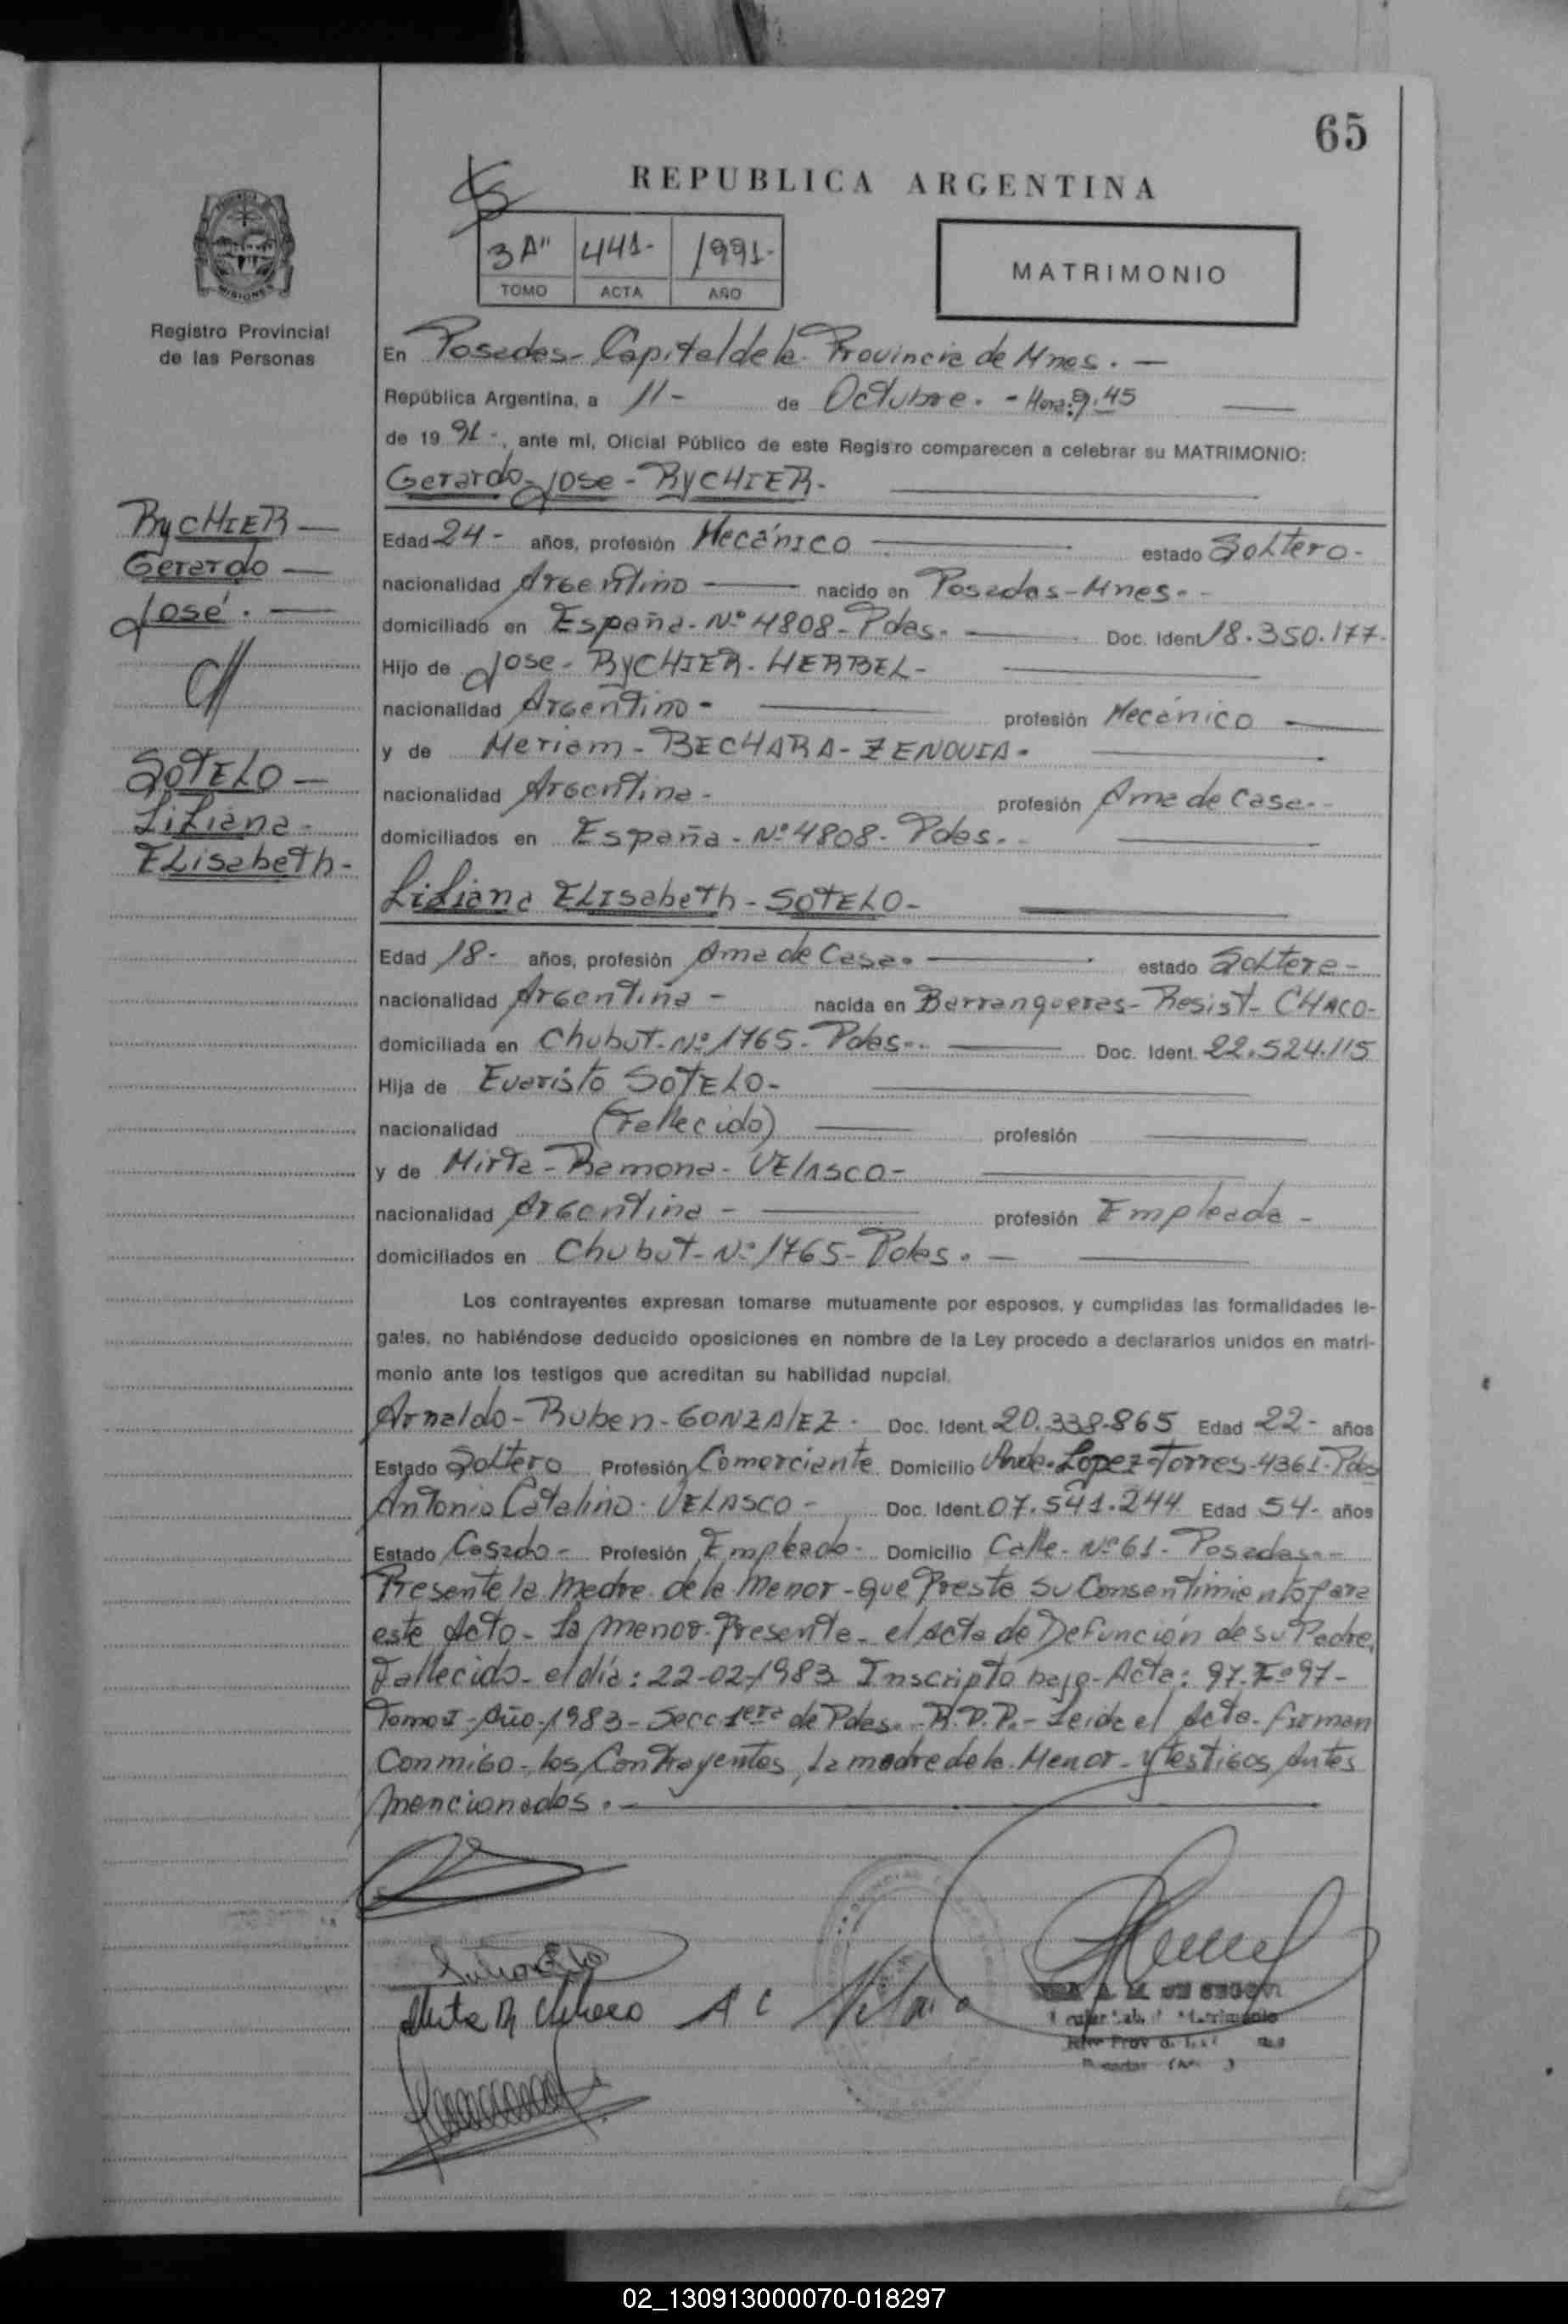 65
REPUBLICA ARGENTINA
MISIONES
3 A" 441- 1991-
TOMO ACTA AÑO
MATRIMONIO
Registro Provincial
de las Personas
En Posadas- Capital de la Provincia de Mnes. -
República Argentina, a 11- de Octubre. - Hora: 9.45
de 19 91-, ante mí, Oficial Público de este Registro comparecen a celebrar su MATRIMONIO:
Gerardo Jose - RyCHIER-
RyCHIER
Gerardo
José.
Edad 24- años, profesión Mecánico estado Soltero-
nacionalidad Argentino nacido en Posadas-Mnes.-
domiciliado en España-Nº 4808-Pdas.- Doc. Ident 18.350.177-
Hijo de Jose-RyCHIER-HERBEL-
nacionalidad Argentino- profesión Mecánico
y de Meriam-BECHARA-ZENOUIA-
nacionalidad Argentina- profesión Ama de Casa--
domiciliados en España-Nº 4808-Pdas.-
SOTELO
Liliana-
Elisabeth-
Liliana ELIsabeth-SOTELO-
Edad 18- años, profesión Ama de Casa. estado Soltera-
nacionalidad Argentina- nacida en Barranqueras-Resist-CHACO-
domiciliada en Chubut-Nº 1765-Pdas-. Doc. Ident. 22.524.115
Hija de Evaristo SOTELO-
nacionalidad (Fallecido) profesión
y de Mirta-Ramona-VELASCO-
nacionalidad Argentina- profesión Empleada-
domiciliados en Chubut-Nº 1765-Pdas. -
Los contrayentes expresan tomarse mutuamente por esposos, y cumplidas las formalidades le-
gales, no habiéndose deducido oposiciones en nombre de la Ley procedo a declararlos unidos en matri-
monio ante los testigos que acreditan su habilidad nupcial.
Arnaldo-Ruben-GONZALEZ- Doc. Ident. 20.338-865 Edad 22- años
Estado Soltero Profesión Comerciante Domicilio Avda.Lopez-Torres-4361-Pdas
Antonio Catalino-VELASCO- Doc. Ident. 07.541.244 Edad 54- años
Estado Casado- Profesión Empleado- Domicilio Calle-Nº 61-Posadas--
Presente la Madre de la Menor-que Presta su Consentimiento para
este Acto-La menor-Presenta-el Acta de Defunción de su Padre,
Fallecido-el día: 22-02-1983 Inscripto bajo-Acta: 97-Fº 97-
Tomo I-Año-1983-Secc 1era de Pdas.-R.P.P.-Leida el Acta-firman
Conmigo-los Contrayentes, La madre de la Menor-y testigos Antes
mencionados.-
A C
02_130913000070-018297